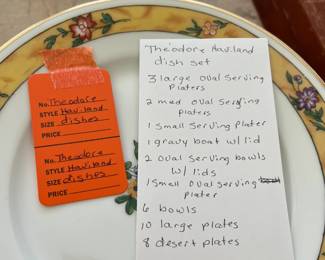 No. Theodore
STYLE Haviland
SIZE dishes
PRICE
No. Theodore
STYLE Haviland
SIZE dishes
PRICE
Theodore Haviland
dish set
3 large oval serving
platers
2 med oval serving
platers
1 small serving plater
1 gravy boat w/ lid
2 oval serving bowls
w/ lids
1 small oval serving
6 bowls
10 large plates
8 desert plates